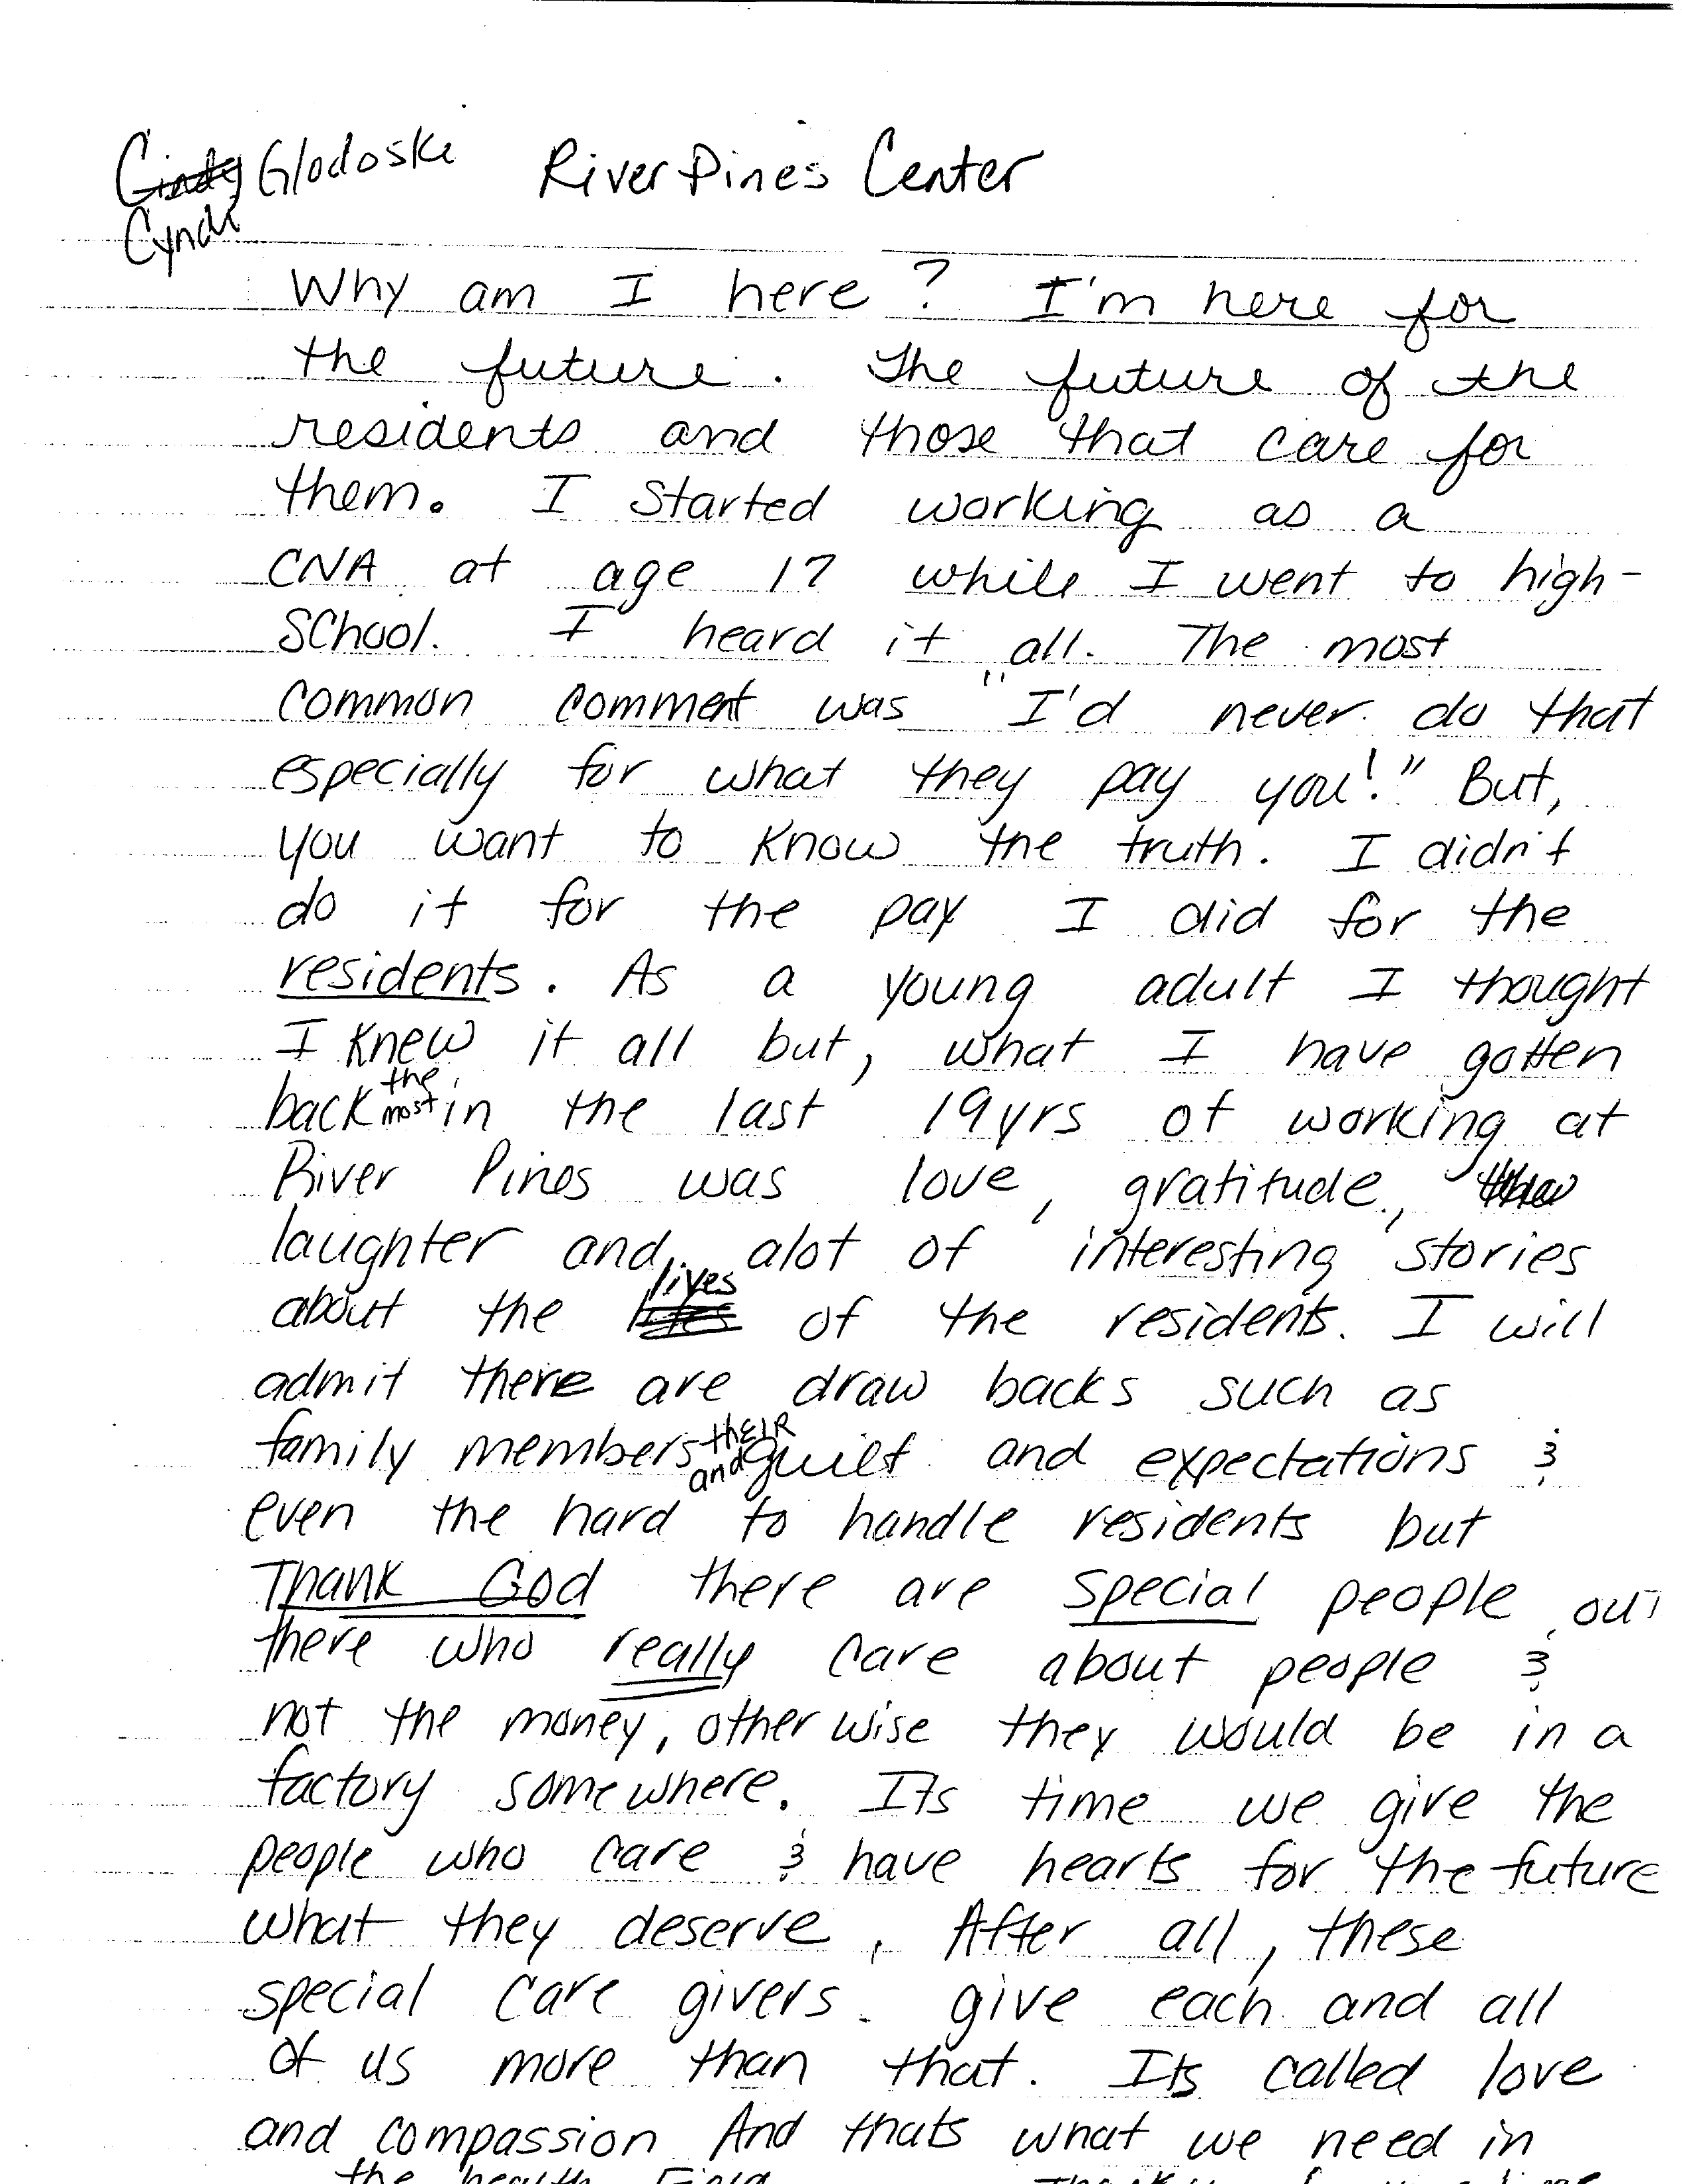 Cindy Glodoski River Pines Center
Cyndi
Why am I here? I'm here for
the future. The future of the
residents and those that care for
them. I started working as a
CNA at age 17 while I went to high-
school. I heard it all. The most
common comment was "I'd never do that
especially for what they pay you!" But,
you want to know the truth. I didn't
do it for the pay I did for the
residents. As a young adult I thought
I knew it all but, what I have gotten
back the most in the last 19yrs of working at
River Pines was love, gratitude,
laughter and alot of interesting stories
about the lives of the residents. I will
admit there are draw backs such as
family members and their guilt and expectations &
even the hard to handle residents but
Thank God there are special people out
there who really care about people &
not the money, other wise they would be in a
factory somewhere. Its time we give the
people who care & have hearts for the future
what they deserve. After all, these
special care givers give each and all
of us more than that. Its called love
and compassion And thats what we need in
the health Field